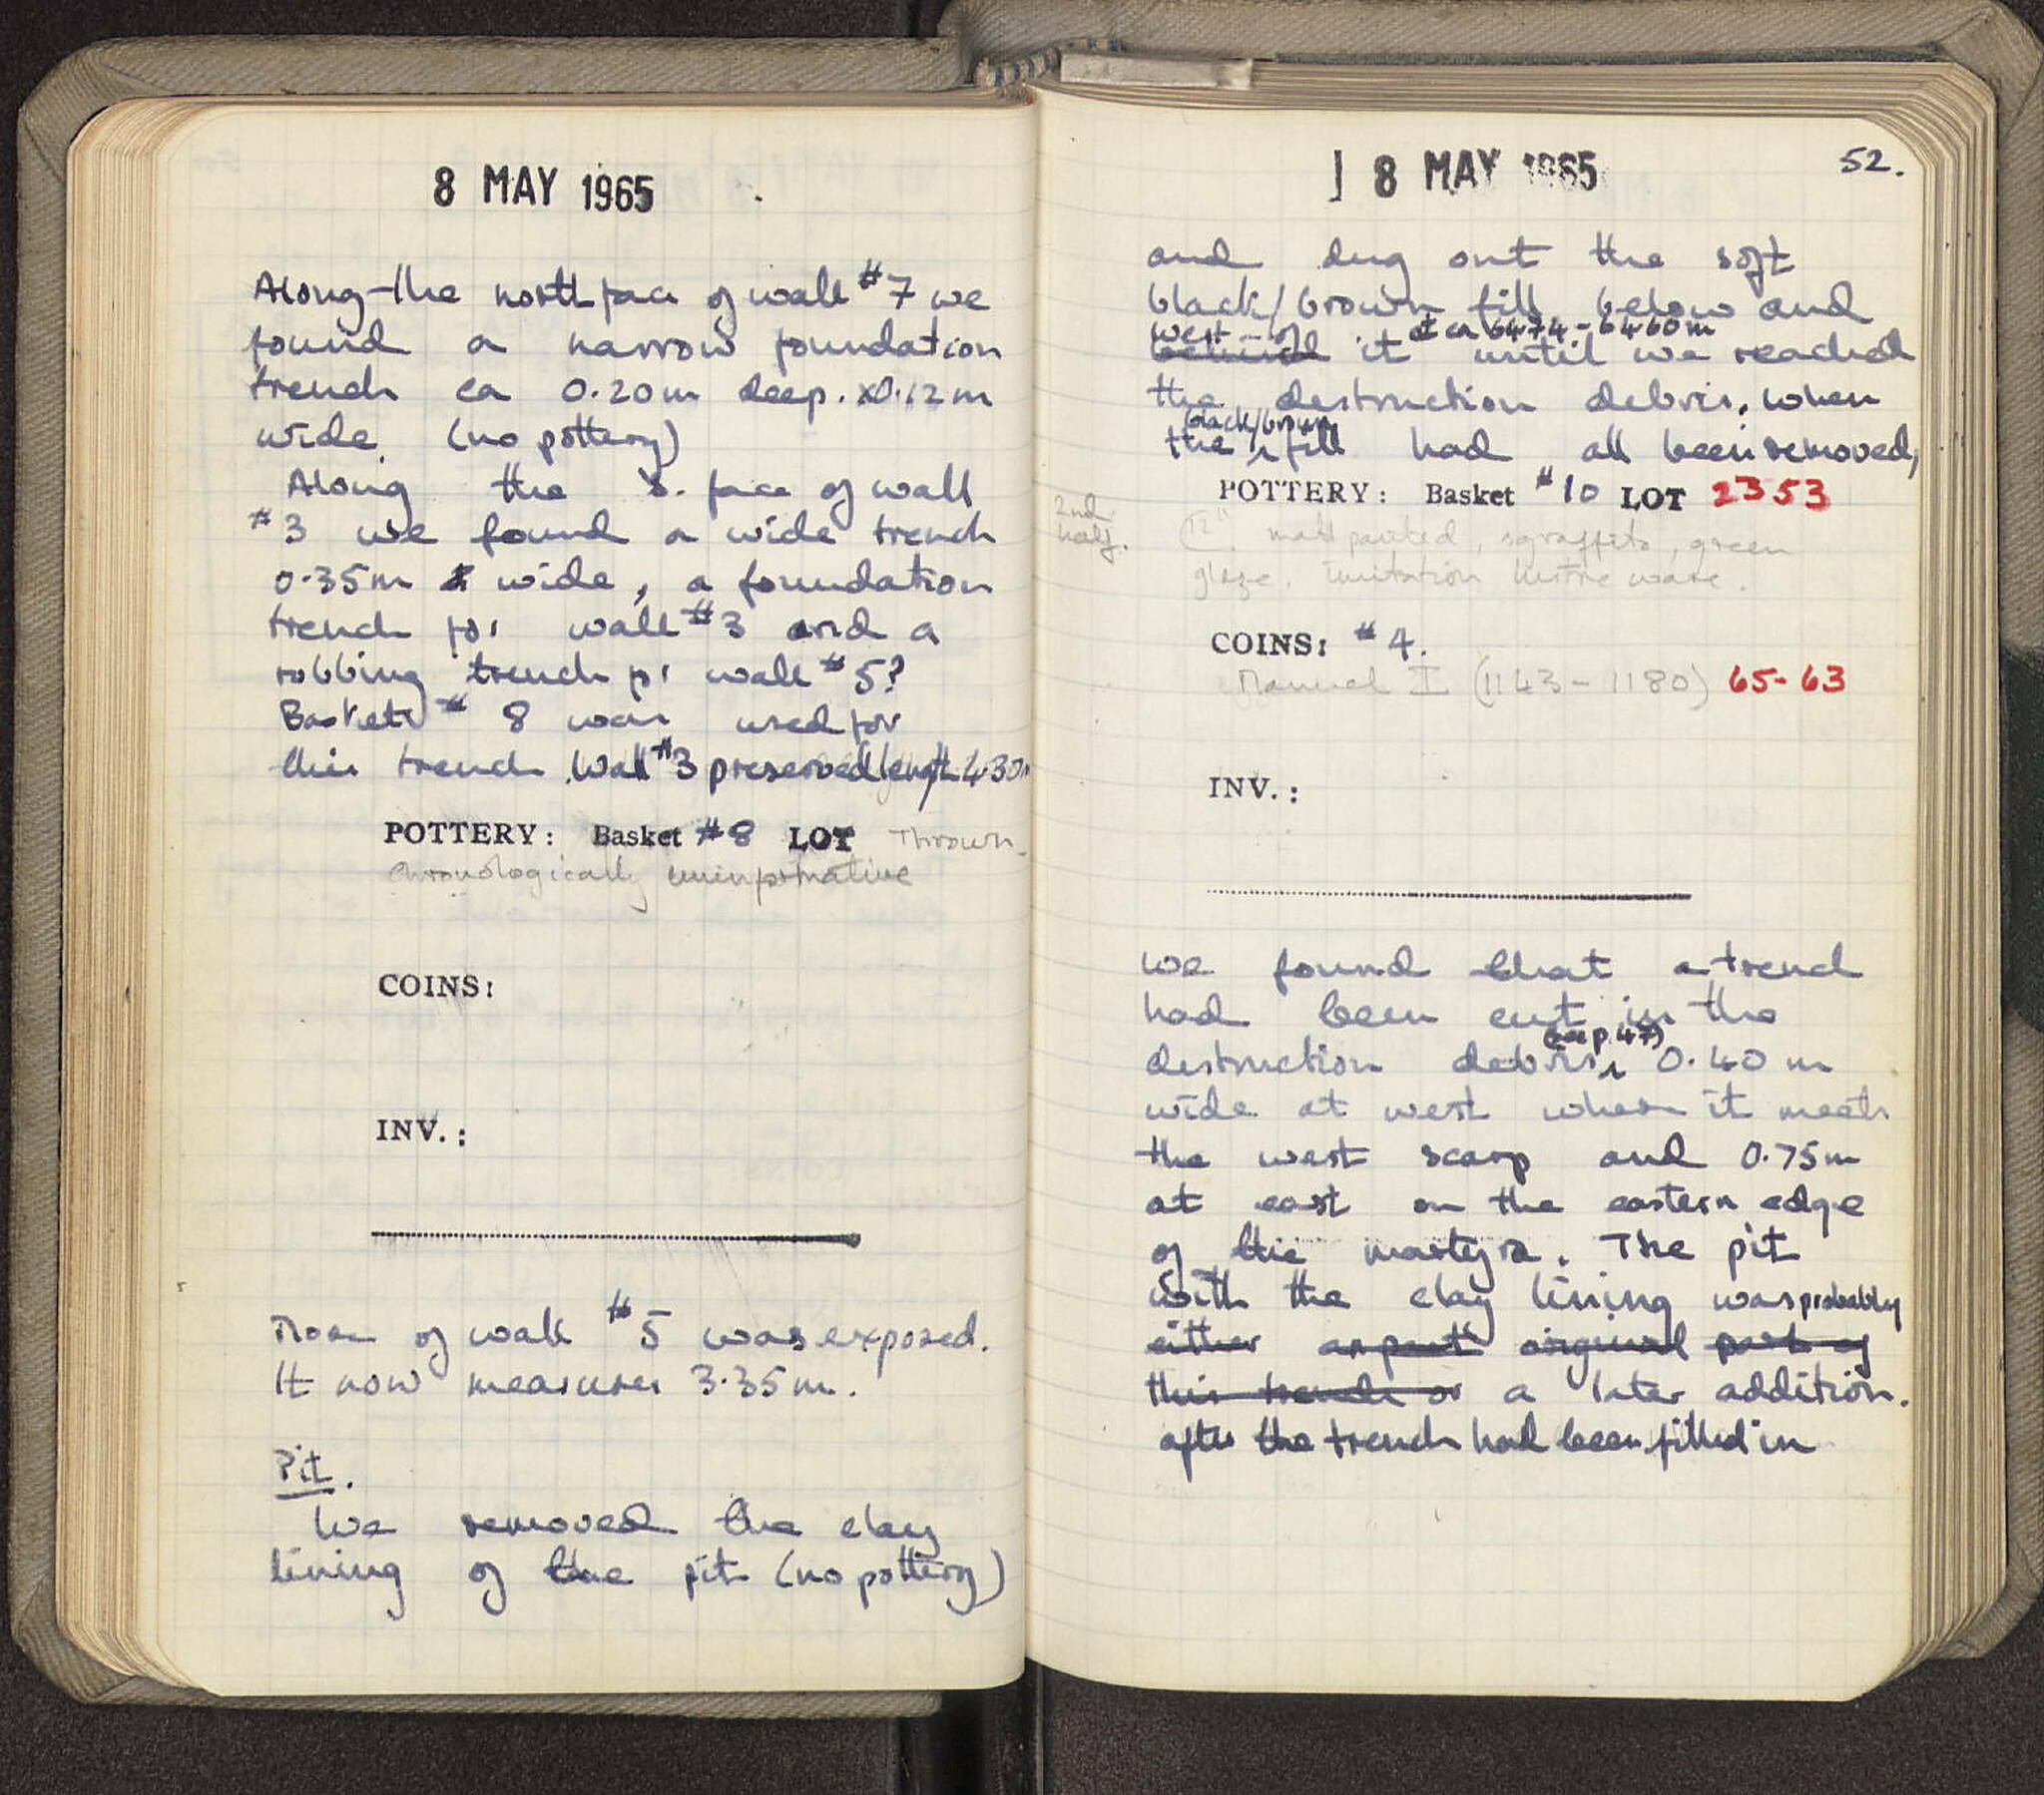 8 MAY 1965
Along the north face of wall #7 we
found a narrow foundation
trench ca 0.20m deep. x0.12m
wide. (no pottery)
Along the S. face of wall
#3 we found a wide trench
0.35m wide, a foundation
trench for wall #3 and a
robbing trench for wall #5?
Basket # 8 was used for
this trench. Wall #3 preserved length 4.30m
POTTERY: Basket #8 LOT Thrown.
Chronologically uninformative
COINS:
INV.:
More of wall #5 was exposed.
It now measures 3.35m.
Pit.
We removed the clay
lining of the pit (no pottery)
8 MAY 1965
52.
and dug out the soft
black/brown fill below and
west of at ca 64.74 - 64.60m
behind it until we reached
the destruction debris. when
black/brown
the fill had all been removed,
POTTERY: Basket #10 LOT 2353
2nd half.
12th matt painted, sgraffito, green
glaze. imitation lustre ware.
COINS: #4.
Manuel I (1143-1180) 65-63
INV.:
we found that a trench
had been cut in the
(see p. 47)
destruction debris, 0.40 m
wide at west where it meets
the west scarp and 0.75m
at east on the eastern edge
of the martyra. The pit
with the clay lining was probably
either as part original part of
this trench or a later addition.
after the trench had been filled in